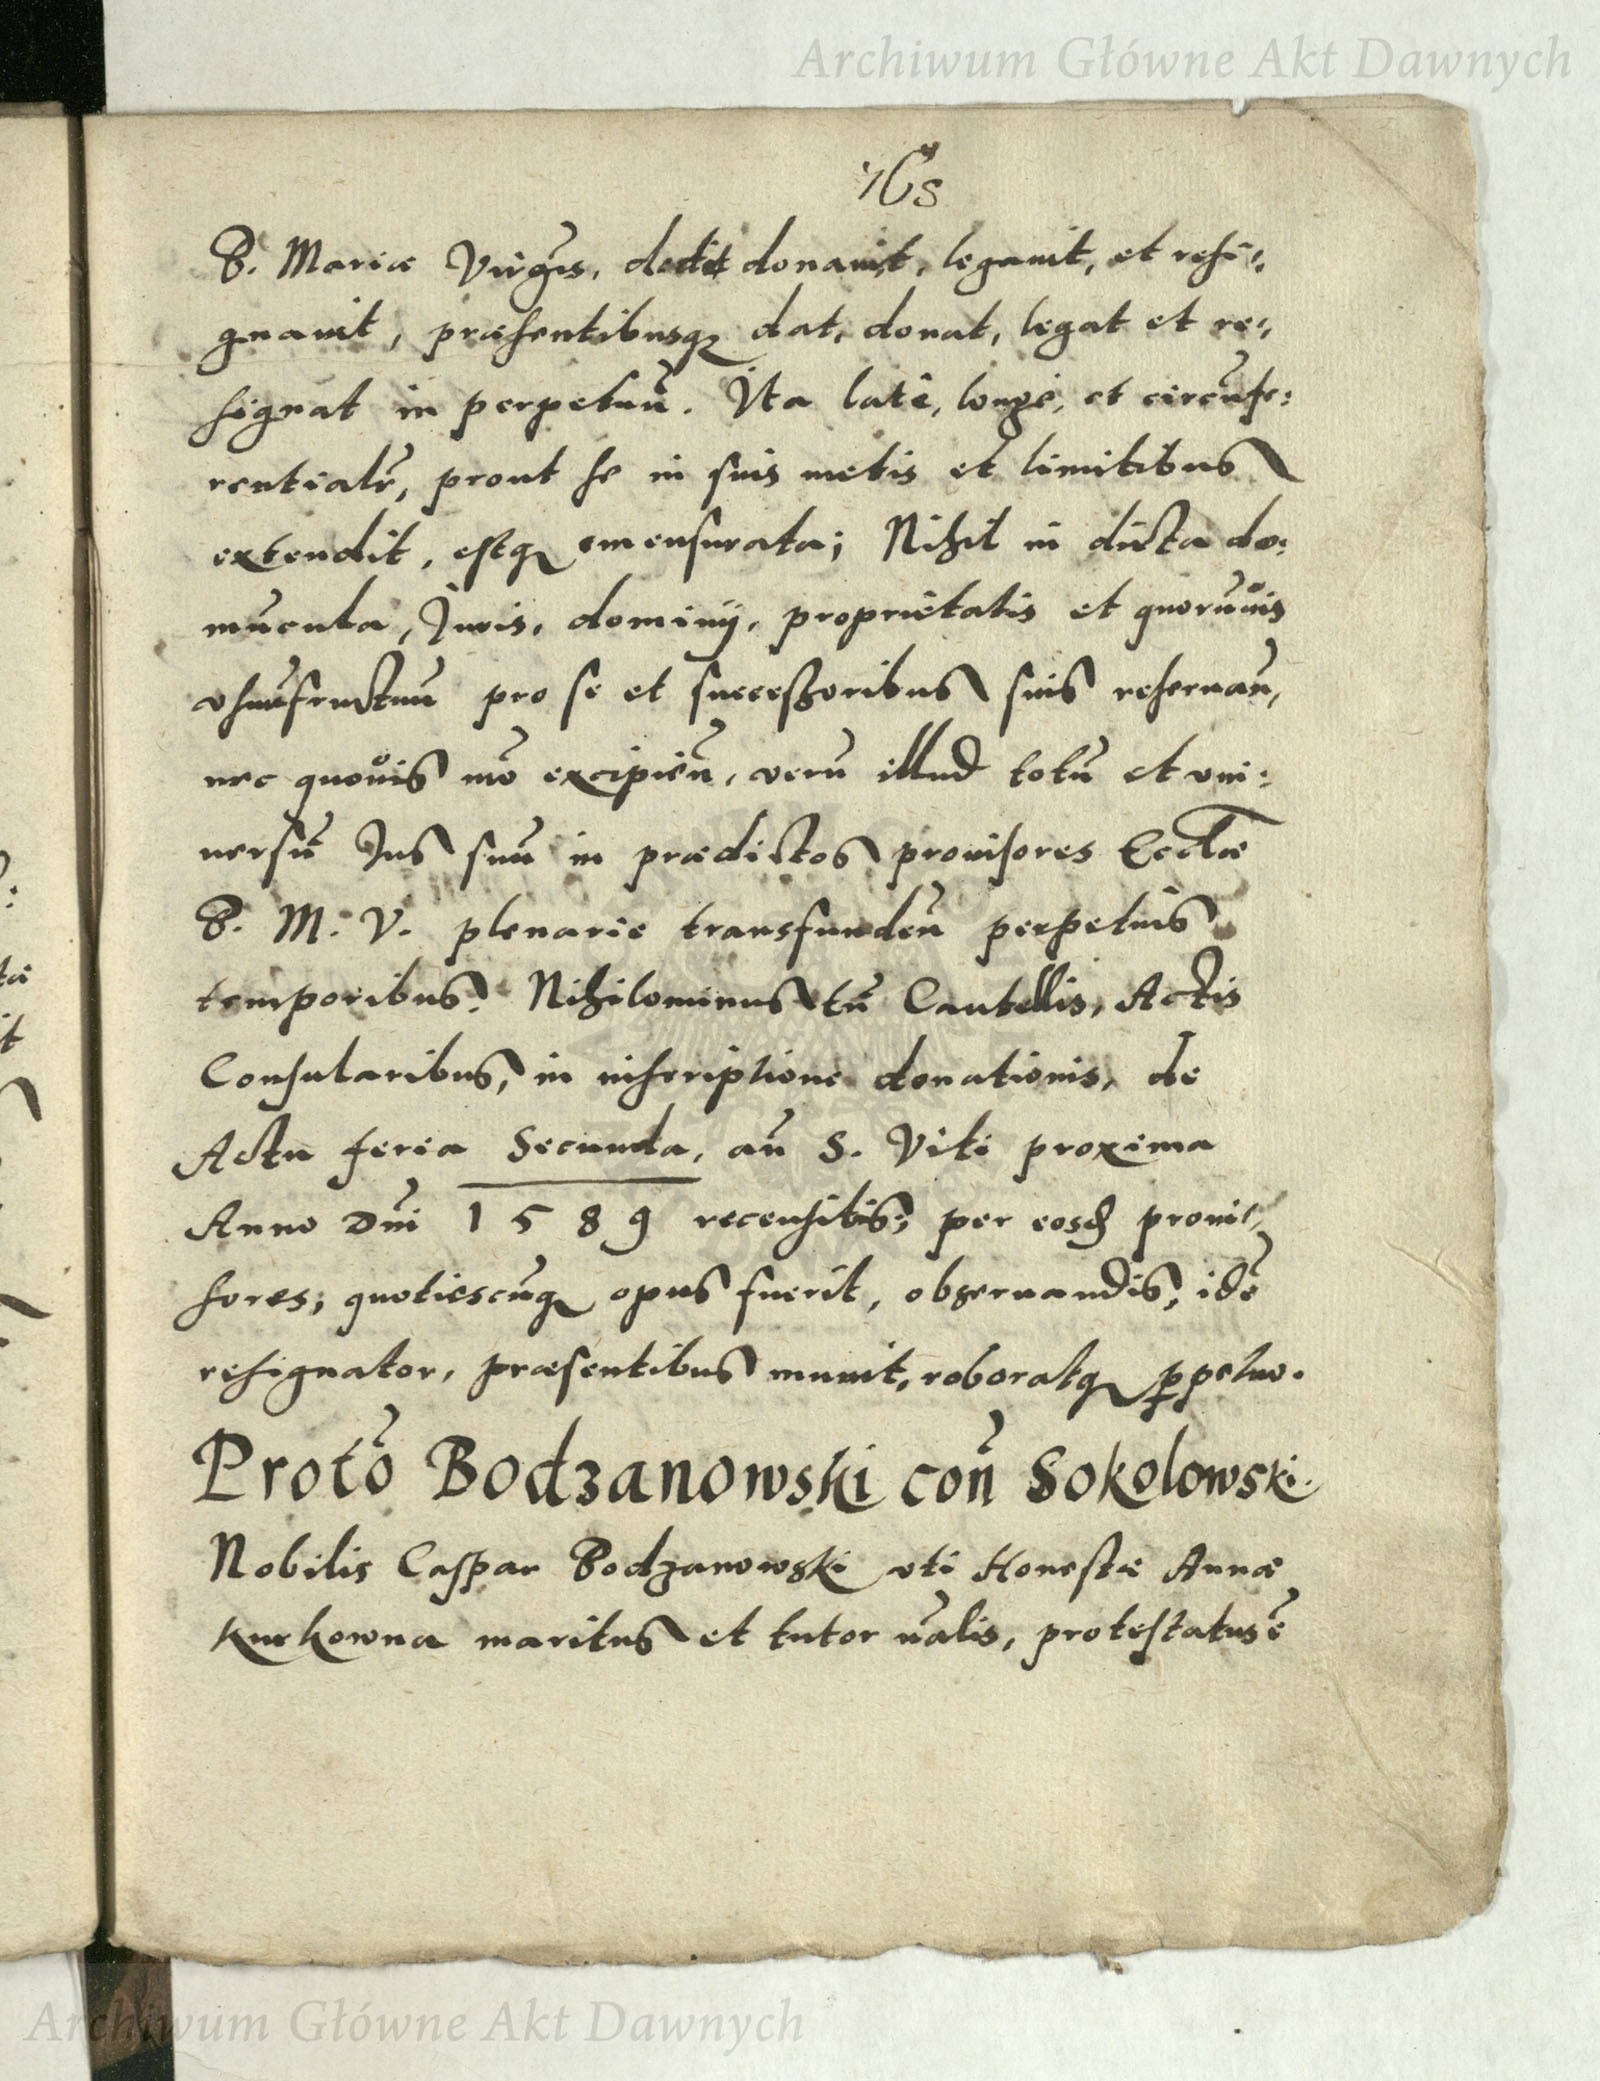 Archiwum Główne Akt Dawnych
B. Mariæ Virgĩs, dedit donauit, legauit, et resi=
gnauit, præsentibusq₃ dat, donat, legat et re=
signat in perpetuũ. Ita latè, longè, et circũfe=
rentialr̃, prout se in suis metis et limitibus
extendit, estq₃ emensurata; Nihil in dicta do=
mũcula, Juris, dominij, proprietatis et quorũuis
vsuũfructuũ pro se et successoribus suis reseruañ,
nec quouis mõ excipieñ, verũ illud totũ et vni=
uersũ Jus suũ in prædictos prouisores Eccłæ
B. M. V. plenarie transfundeñ perpetuis
temporibus. Nihilominus tñ Cautellis, Actis
Consularibus, in inscriptione donationis, de
Actu feria Secunda, añ S. Viti proxima
Anno Dñi 1589 recensitis, per eosd proui=
sores, quotiescũq₃ opus fuerit, obseruandis, idẽ
resignator, præsentibus munit, roboratq₃ ꝑpetuo.
Protõ Bodzanowski coñ Sokolowski.
Nobilis Caspar Bodzanowski vti Honestæ Annæ
Kurkowna maritus et tutor ñalis, protestatus ẽ
Archiwum Główne Akt Dawnych